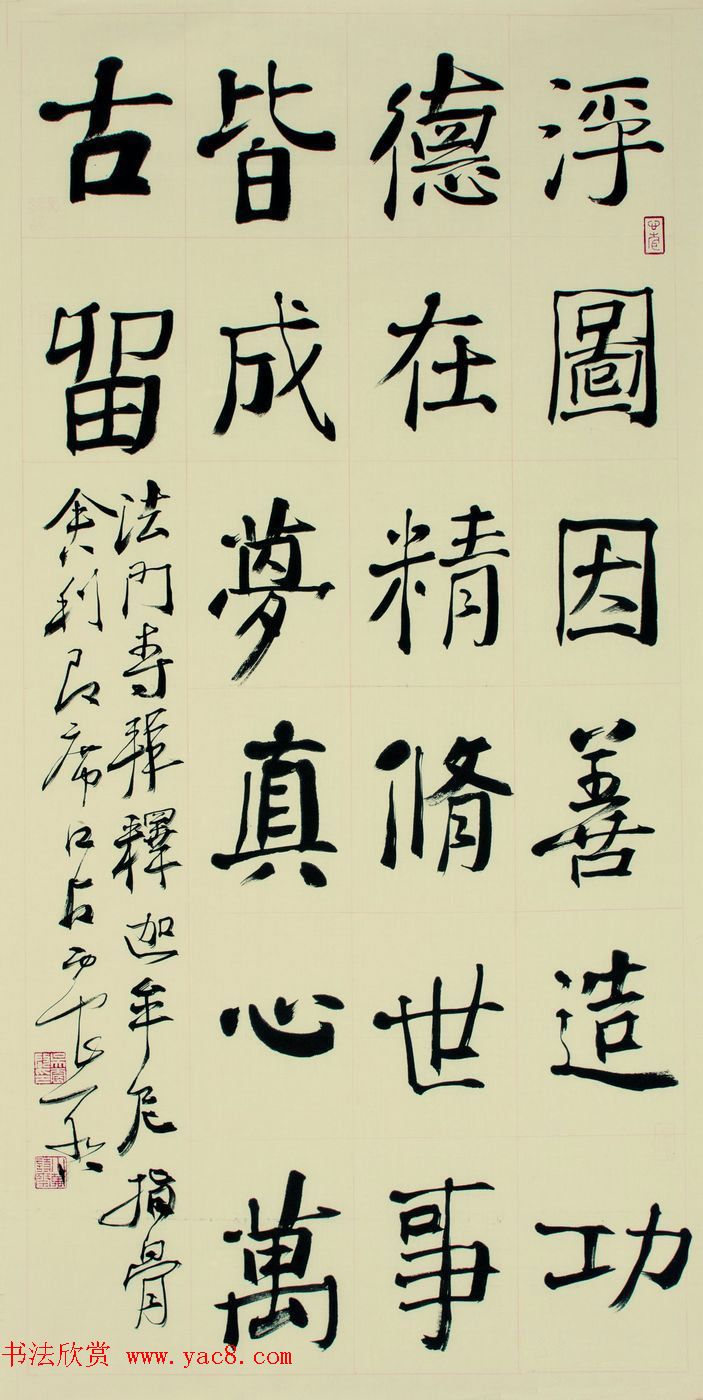 浮圖因善造功
德在精脩世事
皆成夢真心萬
古留
法門寺拜釋迦牟尼指骨
舍利即席口占
书法欣赏 www.yac8.com